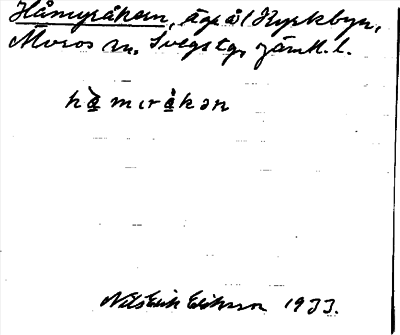 Håmyråkern, äga å l Kyrkbyn,
Moros m. Svegs tg, Jämtl. l.
hå̀mıråkən
Nils Erik Eriksson 1933.